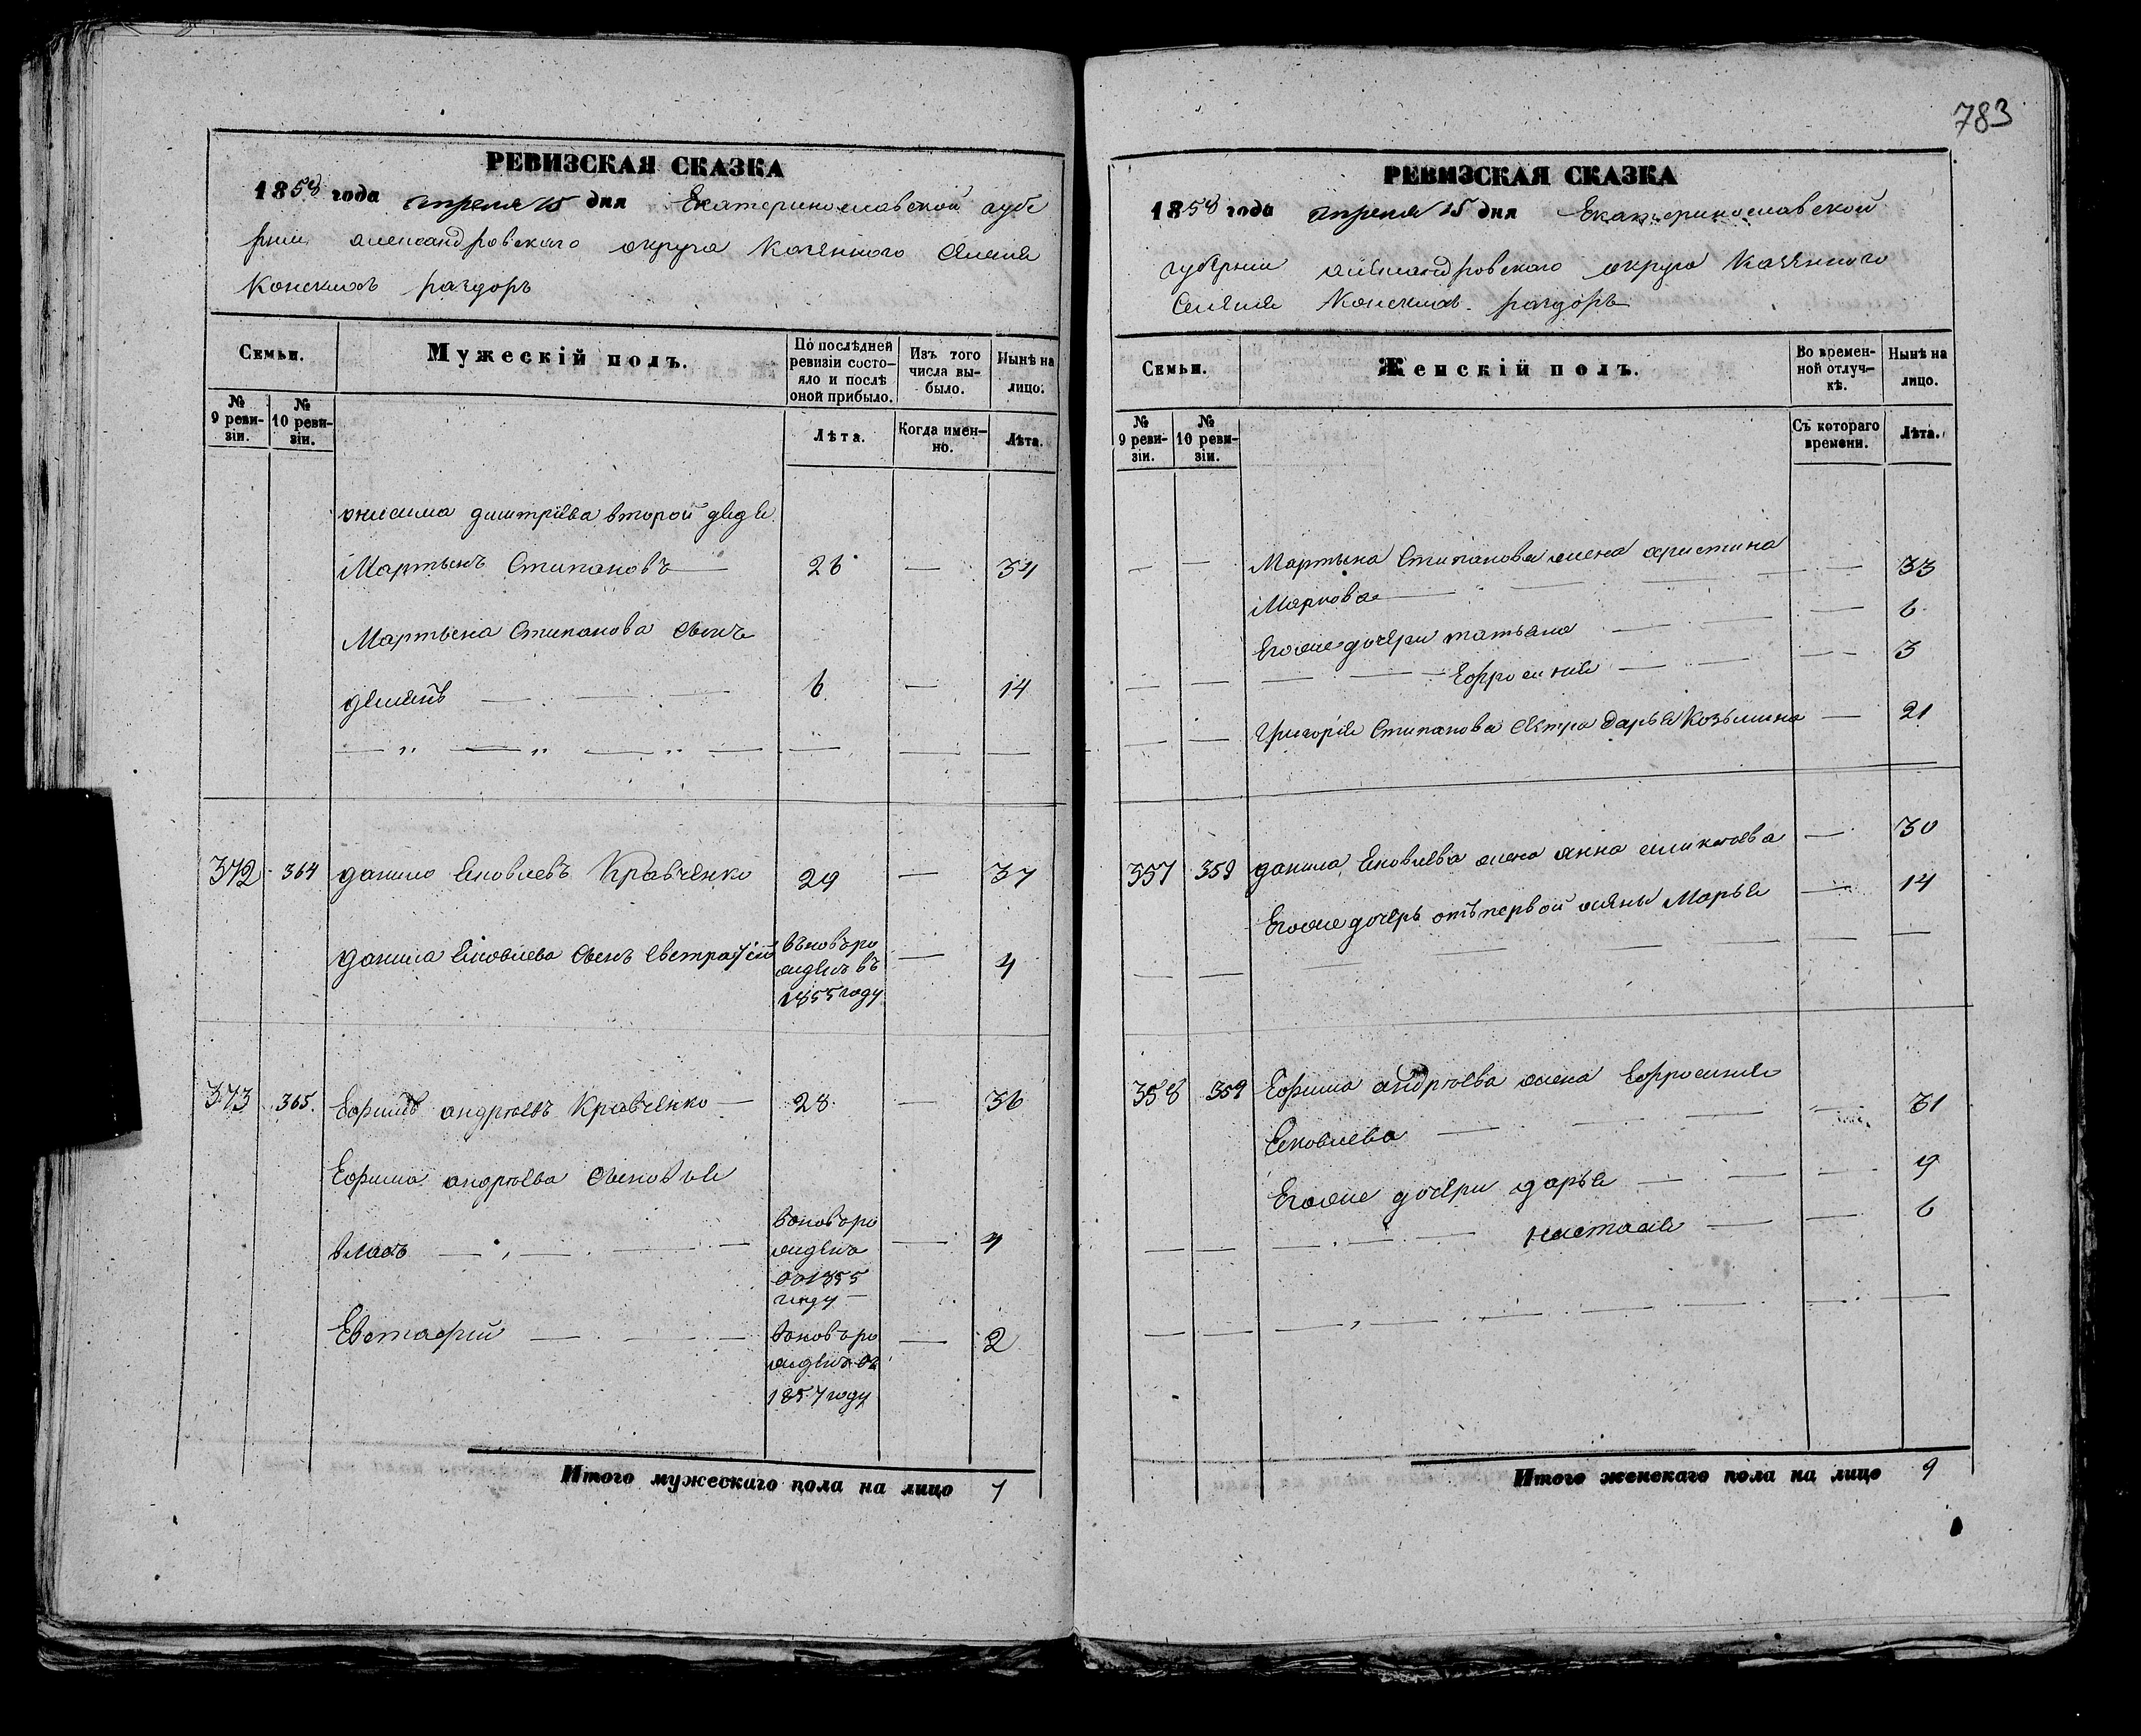 783
РЕВИЗСКАЯ СКАЗКА
1858 года апреля 15 дня Екатеринославской губе
рнии александровского округа Казенного Селения
Конскихъ раздоръ
Семьи.
Мужескій полъ.
По послѣдней ревизіи состояло и послѣ оной прибыло.
Изъ того числа выбыло.
Нынѣ на лицо.
№ 9 ревизіи.
№ 10 ревизіи.
Лѣта.
Когда именно.
Лѣта.
онисима дмитріева второй дядя
Мартынъ Стипановъ 26 — 34
Мартына Стипанова сынъ
демянъ 6 — 14
372 364 данило Яковлевъ Кравченко 29 — 37
данила Яковлева сынъ Евстратій вновь рожденъ въ 1855 году — 4
373 365. Ефимъ андреевъ Кравченко 28 — 36
Ефима андреева сыновья
власъ вновь рожденъ 1855 году — 4
Евстафий вновь рожденъ 1857 году — 2
Итого мужескаго пола на лицо 7
РЕВИЗСКАЯ СКАЗКА
1858 года апреля 15 дня Екатеринославской
губернии александровского округа Казенного
Селения Конскихъ раздоръ
Семьи.
Женскій полъ.
Во временной отлучкѣ.
Нынѣ на лицо.
№ 9 ревизіи.
№ 10 ревизіи.
Съ котораго времени.
Лѣта.
Мартына Стипанова жена христина
Маркова — 33
Егоже дочери татьяна — 6
Ефросиния — 3
Григория Стипанова сестра дарья Козьмина — 21
357 359 данила Яковлева жена анна — 30
Егоже дочерь отъ первой жены Марья — 14
358 359 Ефима андреева жена Ефросиния
Яковлева — 31
Егоже дочери дарья — 9
настасия — 6
Итого женскаго пола на лицо 9